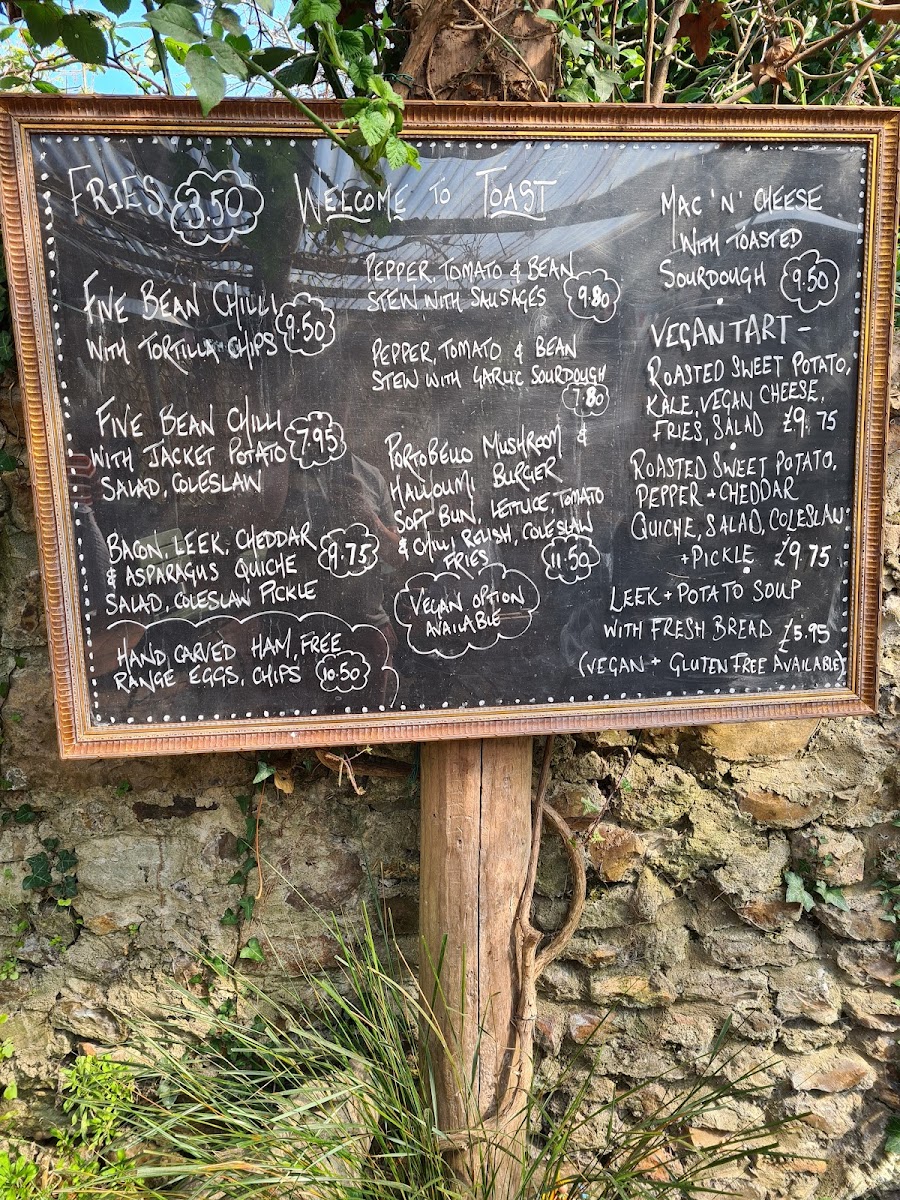 FRIES 3.50
WELCOME TO TOAST
FIVE BEAN CHILLI
WITH TORTILLA CHIPS 9.50
FIVE BEAN CHILLI
WITH JACKET POTATO 7.95
SALAD, COLESLAW
BACON, LEEK, CHEDDAR
& ASPARAGUS QUICHE 9.75
SALAD, COLESLAW PICKLE
HAND CARVED HAM, FREE
RANGE EGGS, CHIPS 10.50
PEPPER, TOMATO & BEAN
STEW WITH SAUSAGES 9.80
PEPPER, TOMATO & BEAN
STEW WITH GARLIC SOURDOUGH
7.80
PORTOBELLO MUSHROOM &
HALLOUMI BURGER
SOFT BUN, LETTUCE, TOMATO
& CHILLI RELISH, COLESLAW
FRIES 11.50
VEGAN OPTION
AVAILABLE
MAC 'N' CHEESE
WITH TOASTED
SOURDOUGH 9.50
VEGAN TART -
ROASTED SWEET POTATO,
KALE, VEGAN CHEESE,
FRIES, SALAD £9.75
ROASTED SWEET POTATO,
PEPPER + CHEDDAR
QUICHE, SALAD, COLESLAW
+ PICKLE £9.75
LEEK + POTATO SOUP
WITH FRESH BREAD £5.95
(VEGAN + GLUTEN FREE AVAILABLE)